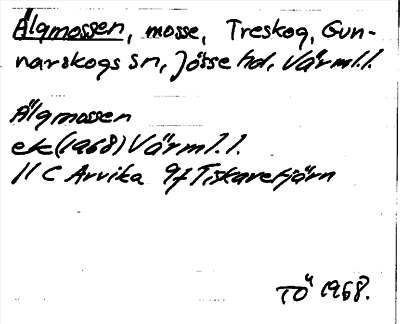 Älgmossen, mosse, Treskog, Gun-
narskogs sn, Jösse hd, Värml.l.
Älgmossen
ek (1968) Värml.l.
11 C Arvika 9f Tiskaretjärn
TÖ 1968.